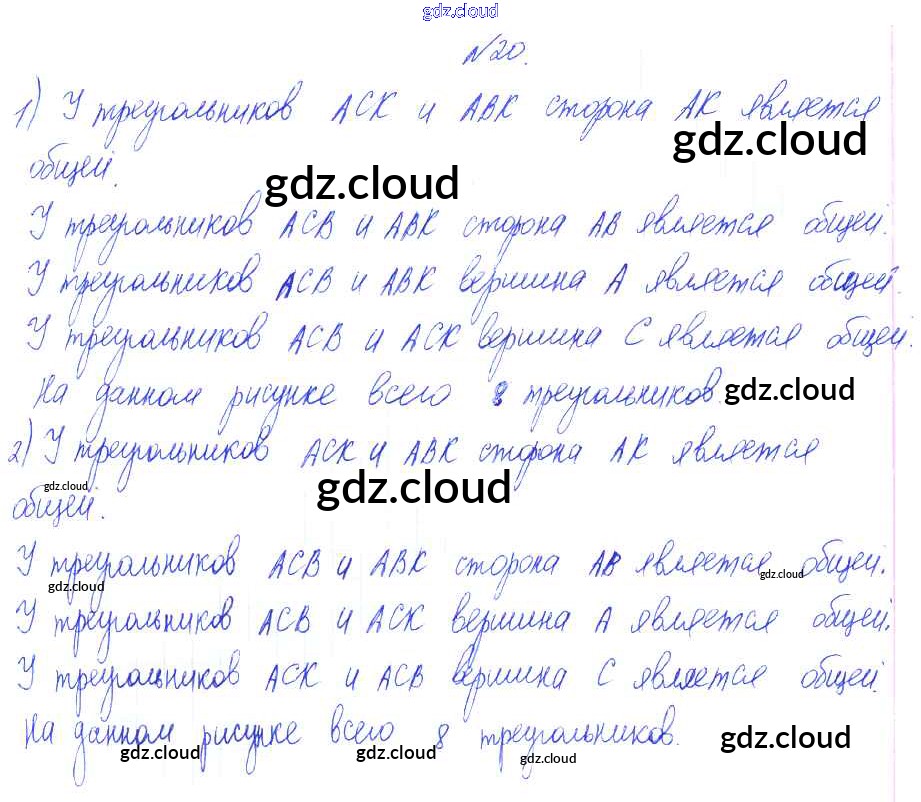 gdz.cloud
№20.
1) У треугольников АСК и АВК сторона АК является
gdz.cloud
общей.
gdz.cloud
У треугольников АСВ и АВК сторона АВ является общей.
У треугольников АСВ и АВК вершина А является общей.
У треугольников АСВ и АСК вершина С является общей.
На данном рисунке всего 8 треугольников.
gdz.cloud
2) У треугольников АСК и АВК сторона АК является
gdz.cloud
gdz.cloud
общей.
У треугольников АСВ и АВК сторона АВ является общей.
gdz.cloud
gdz.cloud
У треугольников АСВ и АСК вершина А является общей.
У треугольников АСК и АСВ вершина С является общей.
На данном рисунке всего 8 треугольников.
gdz.cloud
gdz.cloud
gdz.cloud
gdz.cloud